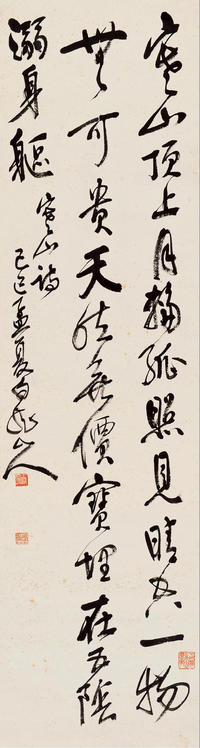 寒山頂上月輪孤照見晴空一物
無可貴天然無價寶埋在五陰
溺身軀
寒山詩
己巳孟夏白龍山人